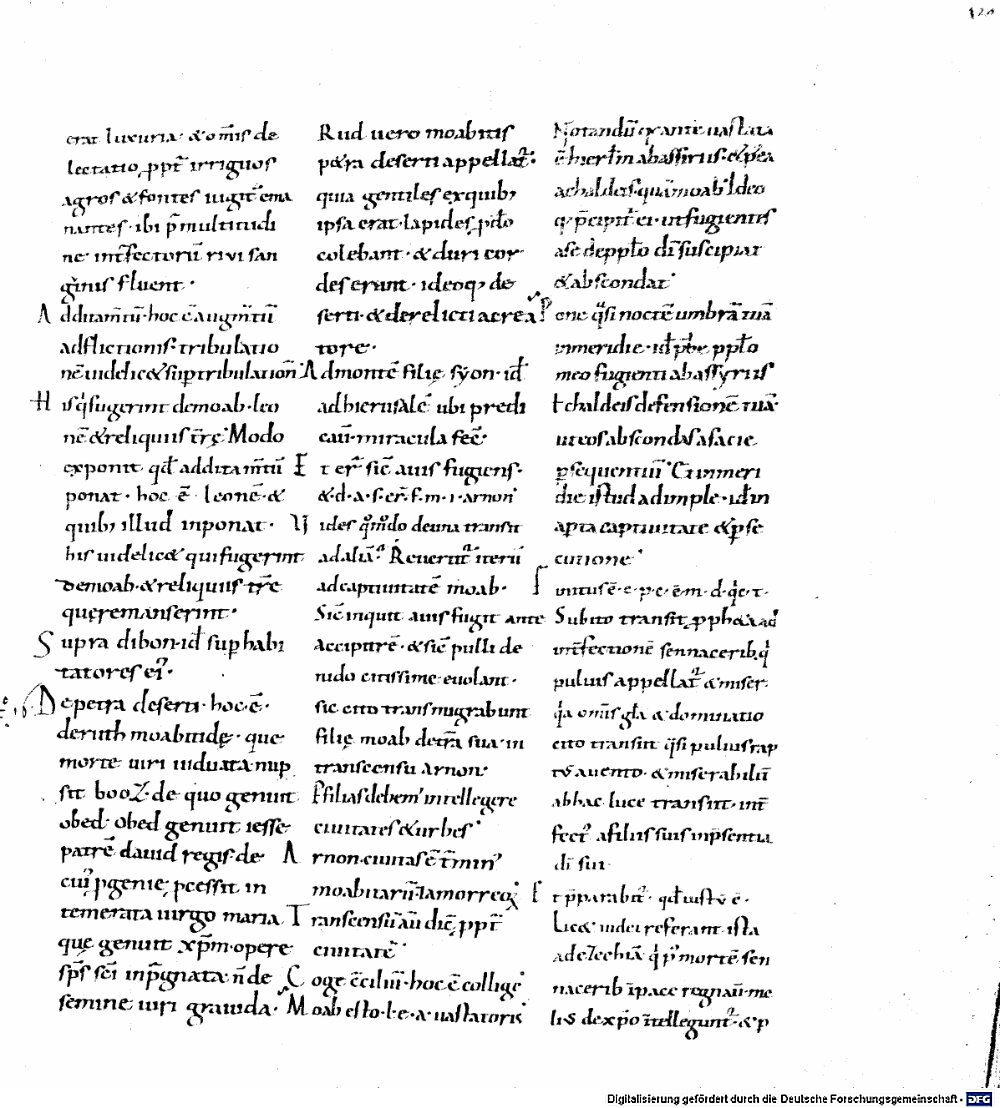 erat luxuria· & om̅is de
lectatio ppt̅ irriguos
agros & fontes iugit̅ ema
nantes· ibi p̅ multitudi
ne int̅fectoru̅ rivi san
g̅nis fluent·
Additam̅tu̅· hoc e̅ augm̅tu̅
adflictionis· tribulatio
ne̅ uidelic& sup tribulation̅
His q̅ fugerint de moab· leo
ne̅ & reliquiis t̅re̜· Modo
exponit qd̅ additam̅tu̅
ponat· hoc e̅ leone̅· &
quib; illud inponat·
his uidelic& qui fugerint
de moab· & reliquiis t̅re
que̜ remanserint·
Supra dibon· id̅ sup habi
tatores ei᾽·
De petra deserti· hoc e̅·
de ruth moabitide̜· que
morte uiri uiduata nup
sit booz· de quo genuit
obed· obed genuit iesse
patre̅ dauid regis· de
cui᾽ pgenie p̱cessit in
temerata uirgo maria
que̜ genuit xp̅m· opere
sp̅s sc̅i inp̅gnata n̅ de
semine uiri grauida·
Rud uero moabitis
p&ra deserti appellat᾽·
quia gentiles ex quib;
ipsa erat· lapides p d̅o
colebant· & duri cor
des erant· ideoq; de
serti· & derelicti a crea
tore·
Ad monte̅ filie̜ syon· id̅
ad hierusale̅ ubi predi
cau̅· miracula fec̅·
Et er̅ sic̅ auis fugiens·
&·d·a·s·er̅·f·m·i·arnon
Vides q̅m̊do de una transit
ad alia̅? Reuertit᾽ iteru̅
ad captiuitate̅ moab·
Sic̅ inquit auis fugit ante
accipitre̅· & sic̅ pulli de
nido citissime euolant·
sic cito transmigrabunt
filie̜ moab de t̅ra sua· in
transcensu arnon·
P filias debem᾽ intellegere
ciuitates & urbes·
Arnon· ciuitas e̅ t̅min᾽
moabitaru̅· & amorreoꝝ
Transcensu̅ au̅ dic̅, ppt̅
ciuitate̅·
Coge c̅ciliu̅· hoc e̅ collige·
Moab esto·l·e·a·uastatoris
Notandu̅ q̅ ante uastata
e̅ hierl̅m ab assiriis· & p̅ea
a chaldeis qua̅ moab· Ideo
q; p̅cipit᾽ ei· ut fugientes
a se de pplo̅ d̅i suscipiat
& abscondat·
Pone q̅si nocte̅ umbra̅ tua̅
in meridie· id̅ p̅be pplo̅
meo fugienti ab assyriis
ł chaldeis defensione̅ tua̅·
ut eos abscondas a facie
p̱sequentiu̅· Cu̅ in meri
die istud adimple· id̅ in
apta captiuitate & p̱se
cutione·
Finitus e̅·e·p·c·e̅·m·d·q̅·c·t·
Subito transit pph&a ad
int̅fectione̅ sennacerib· q̅
puluis appellat᾽ & miser·
q̅a om̅is gl̅a & dominatio
cito transiit q̅si puluis rap
t᾽ a uento· & miserabiliu̅
ab hac luce transiit· int̅
fect᾽ a filiis suis in p̅sentia
di̅ sui
Et p̅parabit᾽· qd̅ iustu̅ e̅·
Lic& iudei referant ista
ad ezechia̅ q̅ p᾽ morte̅ sen
nacerib in pace regnau̅· me
li᾽s de xp̅o i̅tellegunt᾽· & p
Digitalisierung gefördert durch die Deutsche Forschungsgemeinschaft · DFG